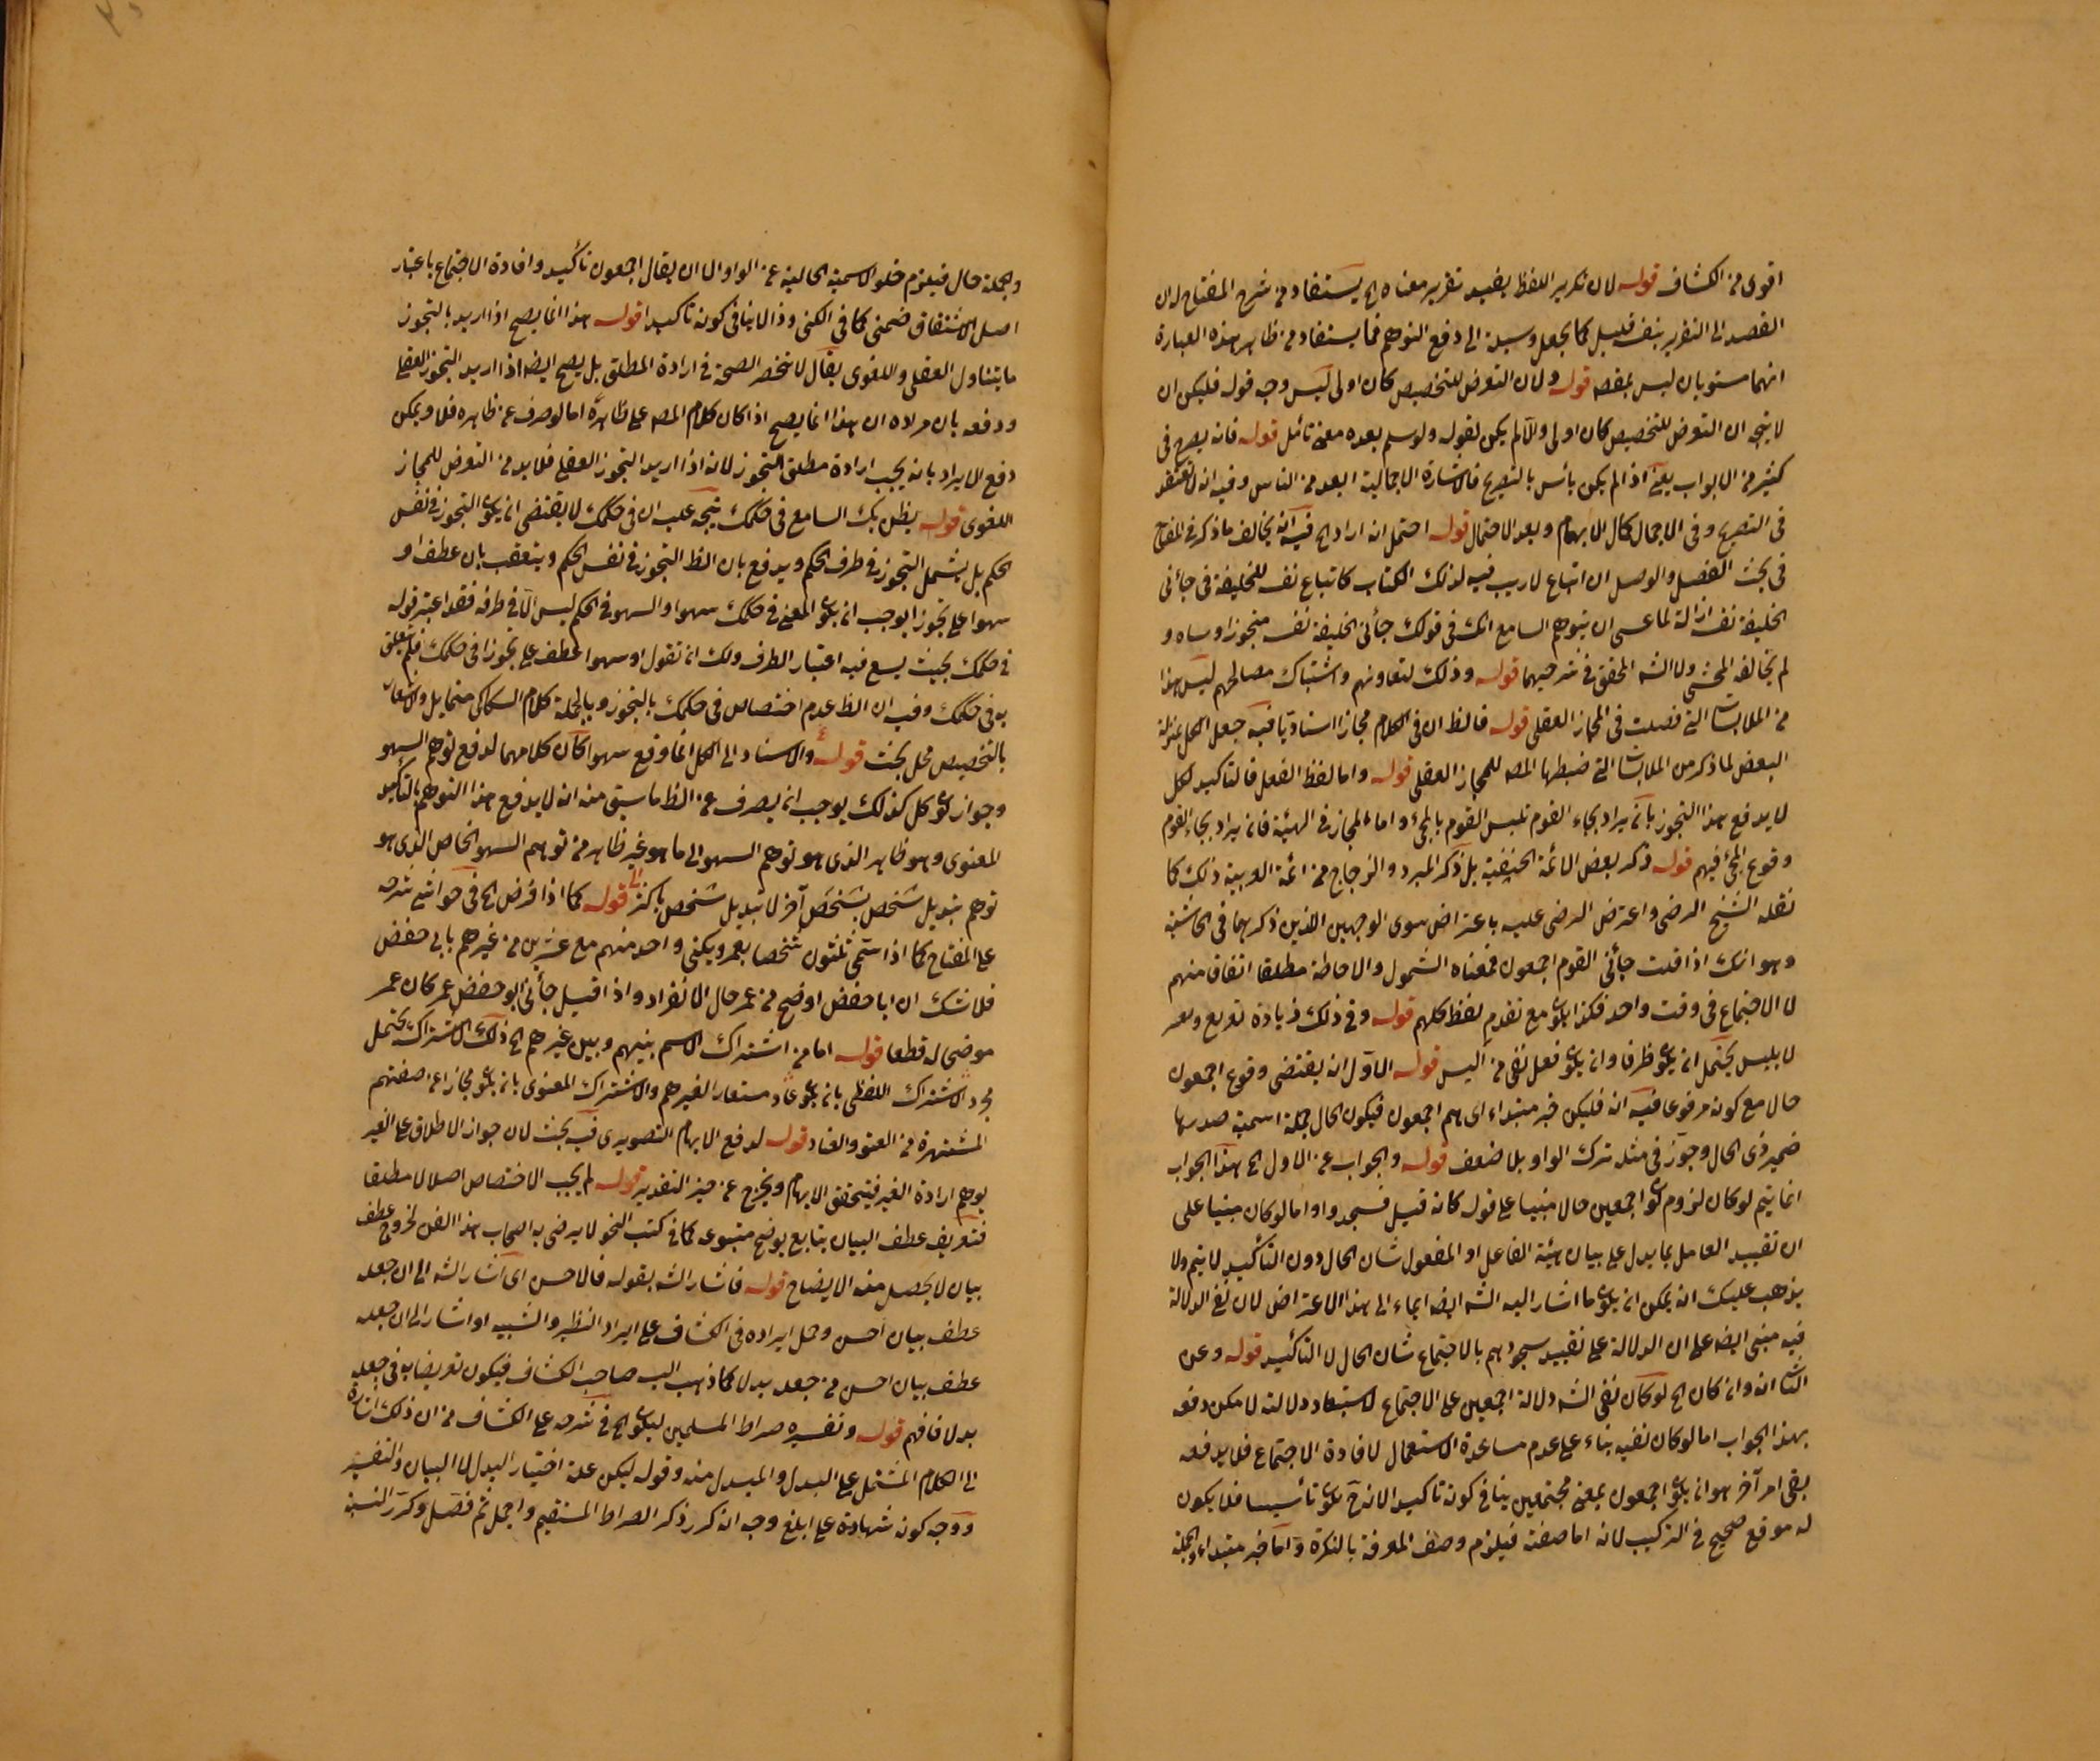 اقوى من الكشاف قوله لان تكرير اللفظ يفيد تقرير معناه الخ يستفاد من شرح المفتاح لان
القصد الى التقرير بنفسه قليل كما يجعل وسيلة الى دفع التوهم فما يستفاد من ظاهر هذه العبارة
انهما مستويان ليس بمقصد قوله ولان التعرض للتخصيص كان اولى ليس وجه قوله فليكن ان
لا يتجه ان التعرض للتخصيص كان اولى والا لم يكن لقوله ولو سلم بعده معنى تأمل قوله فانه يصرح فى
كثير من الابواب يعنى اذا لم يكن بأس بالتصريح فالاشارة الاجمالية ابعد من الباس وفيه انه
فى التصريح وفى الاجمال كمال الابهام وبعد الاحتمال قوله احتمل انه اراد الخ فيه انه يخالف ما ذكر فى المفتاح
فى بحث الفصل والوصل ان اتباع لا ريب فيه لذلك الكتاب كاتباع نفسه للخليفة فى جائنى
الخليفة نفسه ازالة لما عسى ان يتوهم السامع انك فى قولك جائنى الخليفة نفسه متجوز او ساه و
لم يخالفه المحشى ولا الشه المحقق فى شرحيهما قوله وذلك لتعاونهم واشتباك مصالحهم ليس هذا
من الملابسات التى فصلت فى المجاز العقلى قوله فالظ ان فى الكلام مجازا اسناديا فيه جعل الكل بمنزلة
البعض لما ذكر من الملابسات التى ضبطها المصه للمجاز العقلى قوله واما لفظ الفعل فالتاكيد لكل
لا يدفع هذا التجوز بانه يراد بجاء القوم تلبس القوم بالمجئ واما المجاز فى الهيئة فانه يراد بجاء القوم
وقوع المجئ فيهم قوله ذكر بعض الائمة الحنفية بل ذكر المبرد والزجاج من ائمة العربية ذلك كما
نقله الشيخ الرضى واعترض الرضى عليه باعتراض سوى الوجهين اللذين ذكرهما فى الحاشية
وهو انك اذا قلت جائنى القوم اجمعون فمعناه الشمول والاحاطة مطلقا اتفاقا منهم
لا الاجتماع فى وقت واحد فكذا يكون مع تقدم لفظ كلهم قوله وفى ذلك زيادة تعريع وتعـ
لابليس يحتمل ان يكون ظرفا وان يكون فعل نفى من اليس قوله الاول انه يقتضى وقوع اجمعون
حالا مع كونه مرفوعا فيه انه فليكن خبر مبتداء اى هم اجمعون فيكون الحال جملة اسمية صدرها
ضمير ذى الحال وجوز فى مثله ترك الواو بلا ضعف قوله والجواب عن الاول الخ هذا الجواب
انما يتم لو كان لزوم كون اجمعين حالا مبنيا على قوله كانه قيل فسجدوا واما لو كان مبنيا على
ان تقييد العامل بما يدل على بيان هيئة الفاعل او المفعول شان الحال دون التأكيد لا يتم ولا
يذهب عليك انه يمكن ان يكون ما اشار اليه الشه ايضه ايماء الى هذا الاعتراض لان نفى الدلالة
فيه مبنى ايضه على ان الدلالة على تقييد سجودهم بالاجتماع شان الحال لا التأكيد قوله وعن
الثانى انه وان كان الخ لو كان نفى الشه دلالة اجمعين على الاجتماع لاستبعاد دلالته لامكن دفعه
بهذا الجواب اما لو كان نفيه بناء على عدم مساعدة الاستعمال لافادة الاجتماع فلا يدفعه
بقى امر آخر هو ان يكون اجمعون بمعنى مجتمعين ينافى كونه تاكيدا لانه ح يكون تأسيسا فلا يكون
له موقع صحيح فى التركيب لانه اما صفة فيلزم وصف المعرفة بالنكرة واما خبر مبتداء والجملة
والجملة حال فيلزم خلو الاسمية الحالية عن الواو الا ان يقال اجمعون تأكيد وافادة الاجتماع باعتبار
اصل الاشتقاق ضمنى كما فى الكنى وذا لا ينافى كونه تاكيدا قوله هذا انما يصح اذا اريد بالتجوز
ما يتناول العقلى واللغوى يقال لا تنحصر الصحة فى ارادة المطلق بل يصح ايضه اذا اريد التجوز العقلى
ودفعه بان مراده ان هذا انما يصح اذا كان كلام المصه على ظاهره اما لو صرف عن ظاهره فلا ويمكن
دفع الايراد بانه يجب ارادة مطلق التجوز لانه اذا اريد التجوز العقلى فلا بد من التعرض للمجاز
اللغوى قوله يظن بك السامع فى حكمك يتجه عليه ان فى حكمك لا يقتضى ان يكون التجوز فى نفس
الحكم بل يشمل التجوز فى طرف الحكم ويدفع بان الظ التجوز فى نفس الحكم ويتعقب بان عطف او
سهوا على تجوزا يوجب ان يكون المعنى فى حكمك سهوا والسهو فى الحكم ليس الا فى طرفه فقد اعتبر قوله
فى حكمك بحيث يسع فيه اعتبار الطرف ولك ان تقول او سهوا عطف على تجوزا فى حكمك فلم يتعلق
به فى حكمك وفيه ان الظ عدم اختصاص فى حكمك بالتجوز وبالجملة كلام السكاكى متمايل والاشعار
بالتخصيص محل بحث قوله والاسناد الى الكل انما وقع سهوا كان كلامهما لدفع توهم السهو
وجواز كون كل كذلك يوجب ان يصرف عن الظ ما سبق منه انه لا يدفع هذا التوهم بالتأكيد
المعنوى وهو ظاهر الذى هو توهم السهو الى ما هو غير ظاهر من توهم السهو الخاص الذى هو
توهم تبديل شخص بشخص آخر لا تبديل شخص باكثر قوله كما اذا فرض الخ فى حواشى شرحه
على المفتاح كما اذا سمى ثلثون شخصا بعمر ويكنى واحد منهم مع عشرين من غيرهم بابى حفص
فلا شك ان ابا حفص اوضح من عمر حال الانفراد واذا قيل جائنى ابو حفص عمر كان عمر
موضحا له قطعا قوله اما من اشتراك الاسم بينهم وبين غيرهم الخ ذلك الاشتراك يحتمل
مجرد الاشتراك اللفظى بان يكون عاد مستعارا لغيرهم والاشتراك المعنوى بان يكون مجازا عن صفتهم
المشتهرة من العتو والعناد قوله لدفع الابهام التصويرى فيه بحث لان جواز الاطلاق على الغير
يوهم ارادة الغير فيتحقق الابهام ويخرج عن حيز التقدير قوله لم يجب الاختصاص اصلا لا مطلقا
فتعريف عطف البيان بتابع يوضح متبوعه كما فى كتب النحو لا يرضى به اصحاب هذا الفن لخروج عطف
بيان لا يحصل منه الايضاح قوله فاشار الشه بقوله فالاحسن اى اشار الشه الى ان جعله
عطف بيان احسن وحمل ايراده فى الكشاف على ايراد النظير والتشبيه او اشار الى ان جعله
عطف بيان احسن من جعله بدلا كما ذهب اليه صاحب الكشاف فيكون تعريضا به فى جعله
بدلا فافهم قوله وتفسيره صراط المسلمين ليكون الخ فى شرحه على الكشاف من ان ذلك اشارة
الى الكلام المشتمل على البدل والمبدل منه وقوله ليكن علة اختيار البدل لا البيان والتفسير
ووجه كونه شهادة على ابلغ وجه انه كرر ذكر الصراط المستقيم واجمل ثم فصل وكرر النسبة